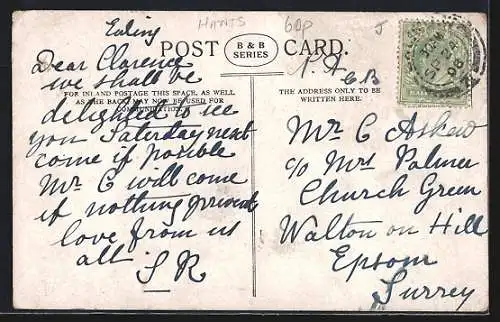 HANTS
60p
J
Ealing
POST
B & B
SERIES
CARD.
Dear Clarence
we shall be
FOR INLAND POSTAGE THIS SPACE, AS WELL
AS THE BACK, MAY NOW BE USED FOR
COMMUNICATION.
delighted to see
you Saturday next
come if posible
Mr C will come
if nothing prevents
love from us
all. S R
THE ADDRESS ONLY TO BE
WRITTEN HERE.
Mr C Askew
c/o Mrs Palmer
Church Green
Walton on Hill
Epsom
Surrey